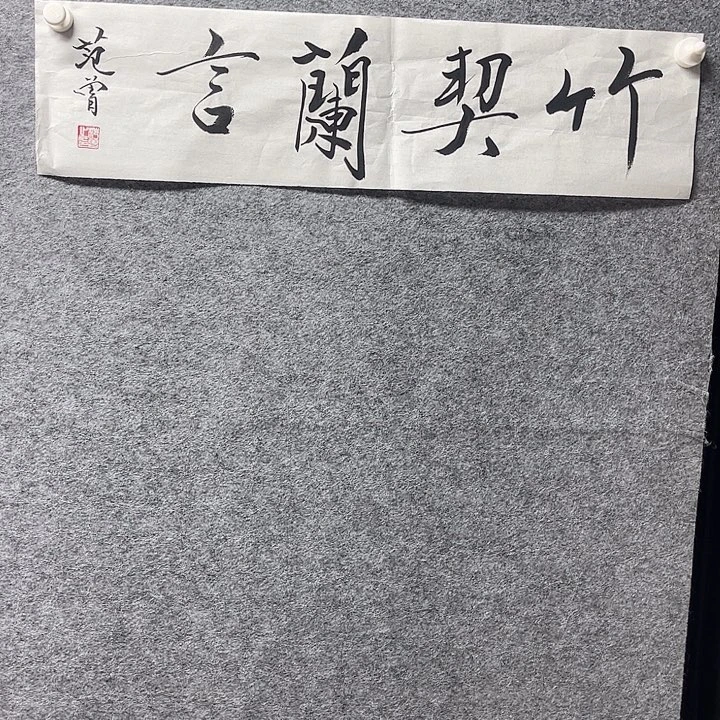 竹契蘭言
范曾